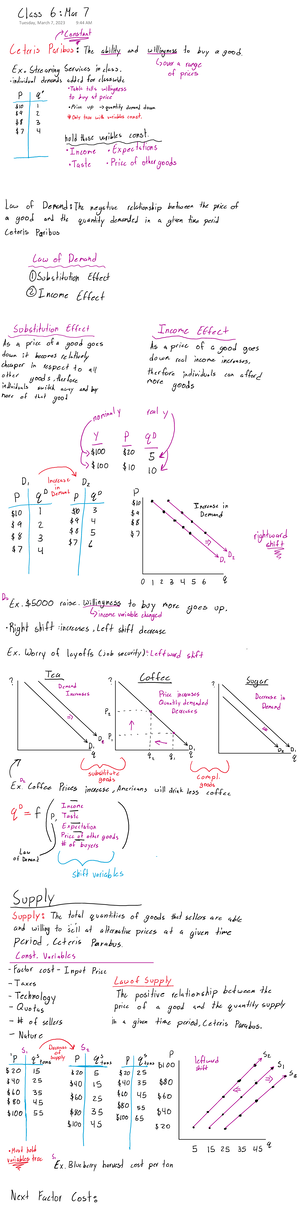 Class 6: Mar 7
Tuesday, March 7, 2023 9:41 AM
Constant
Ceteris Paribus: The ability and willingness to buy a good.
over a range
of prices
Ex. Streaming Services in class.
• individual demands added for classwide
P q
$10 1
$9 2
$8 3
$7 4
• Table tells willingness
to buy at price
• Price up → quantity demand down
hold those variables const.
• Income • Expectations
• Taste • Price of other goods
Law of Demand: The negative relationship between the price of
a good and the quantity demanded in a given time perid
Ceteris Paribus
Law of Demand
① Substitution Effect
② Income Effect
Substitution Effect
As a price of a good goes
down it becomes relatively
cheaper in respect to all
other goods, therfore
individuals switch away and buy
more of that good
Income Effect
As a price of a good goes
down real income increases,
therfore individuals can afford
more goods
nominal y real y
Y P qD
$100 $20 5
$100 $10 10
D₁ Increase in Demand D₂
P qD P qD
$10 1 $10 3
$9 2 $9 4
$8 3 $8 5
$7 4 $7 6
P
$10
$9
$8
$7
Increase in
Demand
D₁
D₂
rightward
shift
0 1 2 3 4 5 6 q
Ex. $5000 raise. willingness to buy more goes up.
income variable changed
• Right shift increases, Left shift decrease
Ex. Worry of layoffs (job security): Leftward shift
Tea Coffee Sugar
?
Demand
Increases
D₁
q
P
Price increases
Quantity demanded
Decreases
P₂
P₁
q₂ q₁
D₁
q
?
Decrease in
Demand
q
substitute
goods
compl.
goods
Ex. Coffee Prices increase, Americans will drink less coffee
qD = f ( P, Income
Taste
Expectation
Price of other goods
# of buyers )
Law
of Demand
shift variables
Supply
Supply: The total quantities of goods that sellers are able
and willing to sell at alternative prices at a given time
period, Ceteris Parabus.
Const. Variables
- Factor cost - Input Price
- Taxes
- Technology
- Quotas
- # of sellers
- Nature
Law of Supply
The positive relationship between the
price of a good and the quantity supply
in a given time period, Ceteris Parabus.
S₁ Decrease of Supply S₂
P qS tons P qS tons P qS tons
$20 15 $20 5 $20 25
$40 25 $40 15 $40 35
$60 35 $60 25 $60 45
$80 45 $80 35 $80 55
$100 55 $100 45 $100 65
P
$100
$80
$60
$40
$20
leftward
shift
S₂
S₁
5 15 25 35 45 q
• Must hold
variables true
Ex. Blueberry harvest cost per ton
Next Factor Cost: